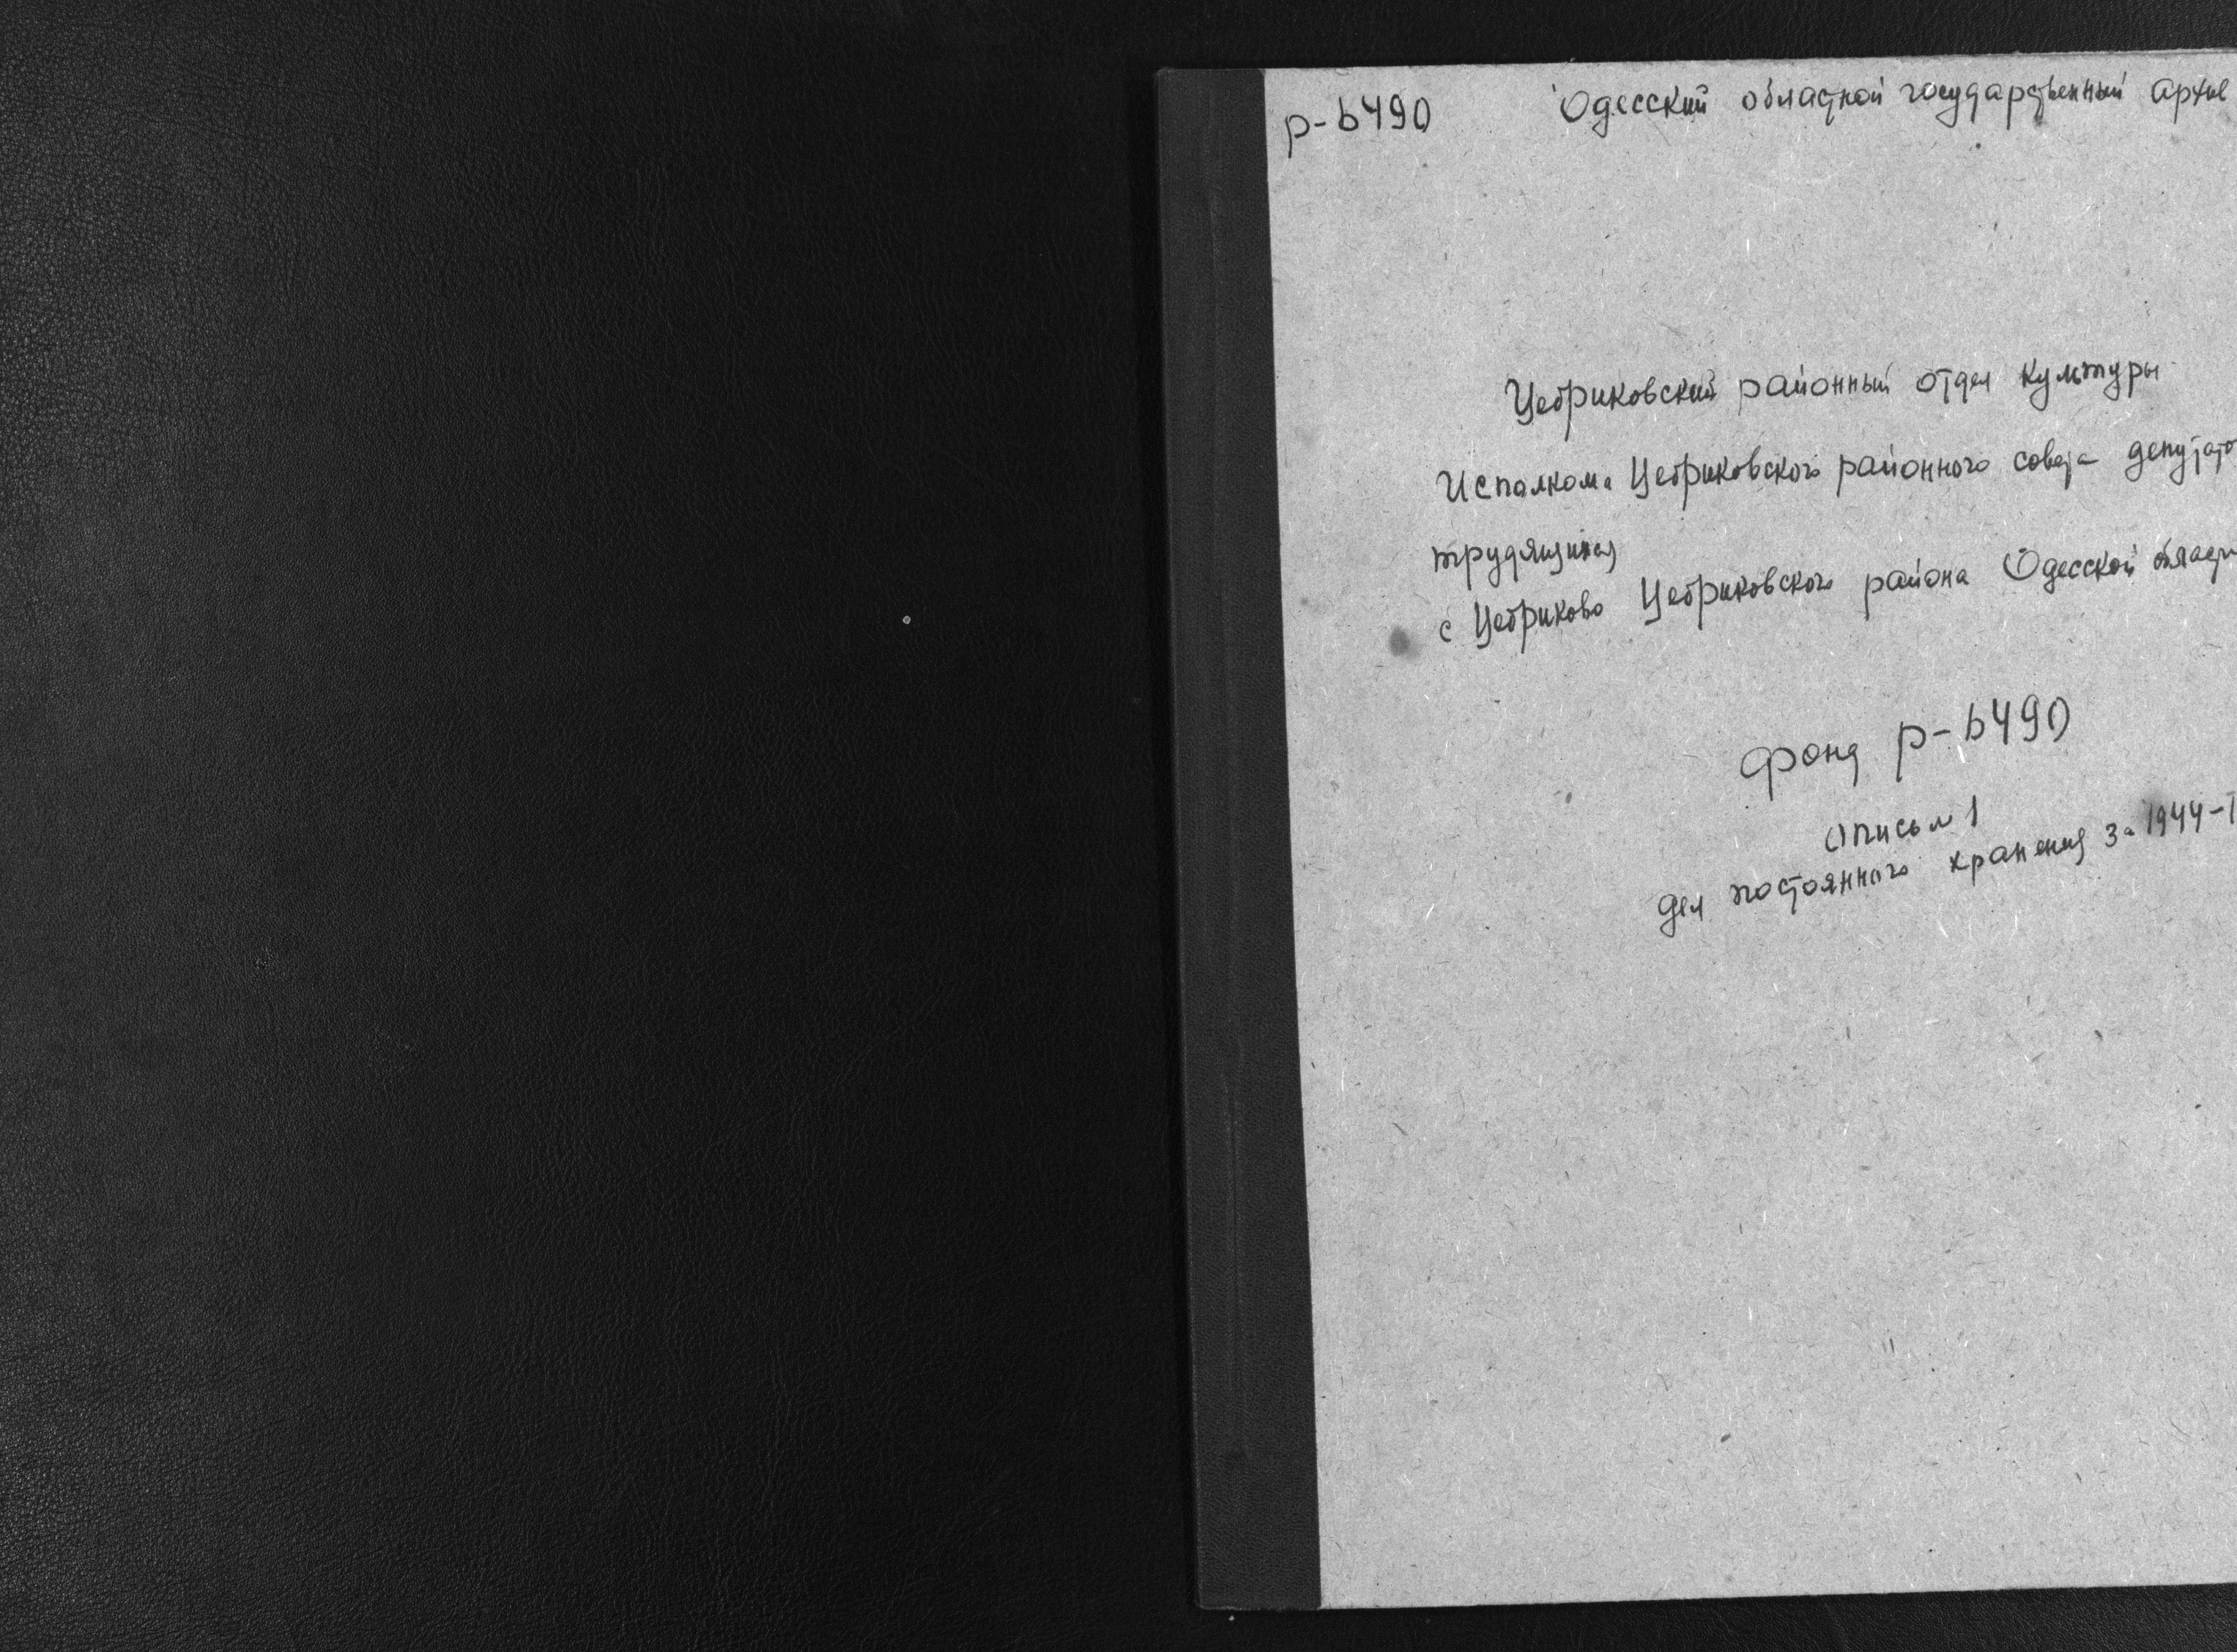 р-6490 Одесский областной государственный архив
Цебриковский районный отдел культуры
Исполкома Цебриковского районного совета депутато
трудящихся
с Цебриково Цебриковского района Одесской области
Фонд р-6490
Опись №1
дел постоянного хранения за 1944-1